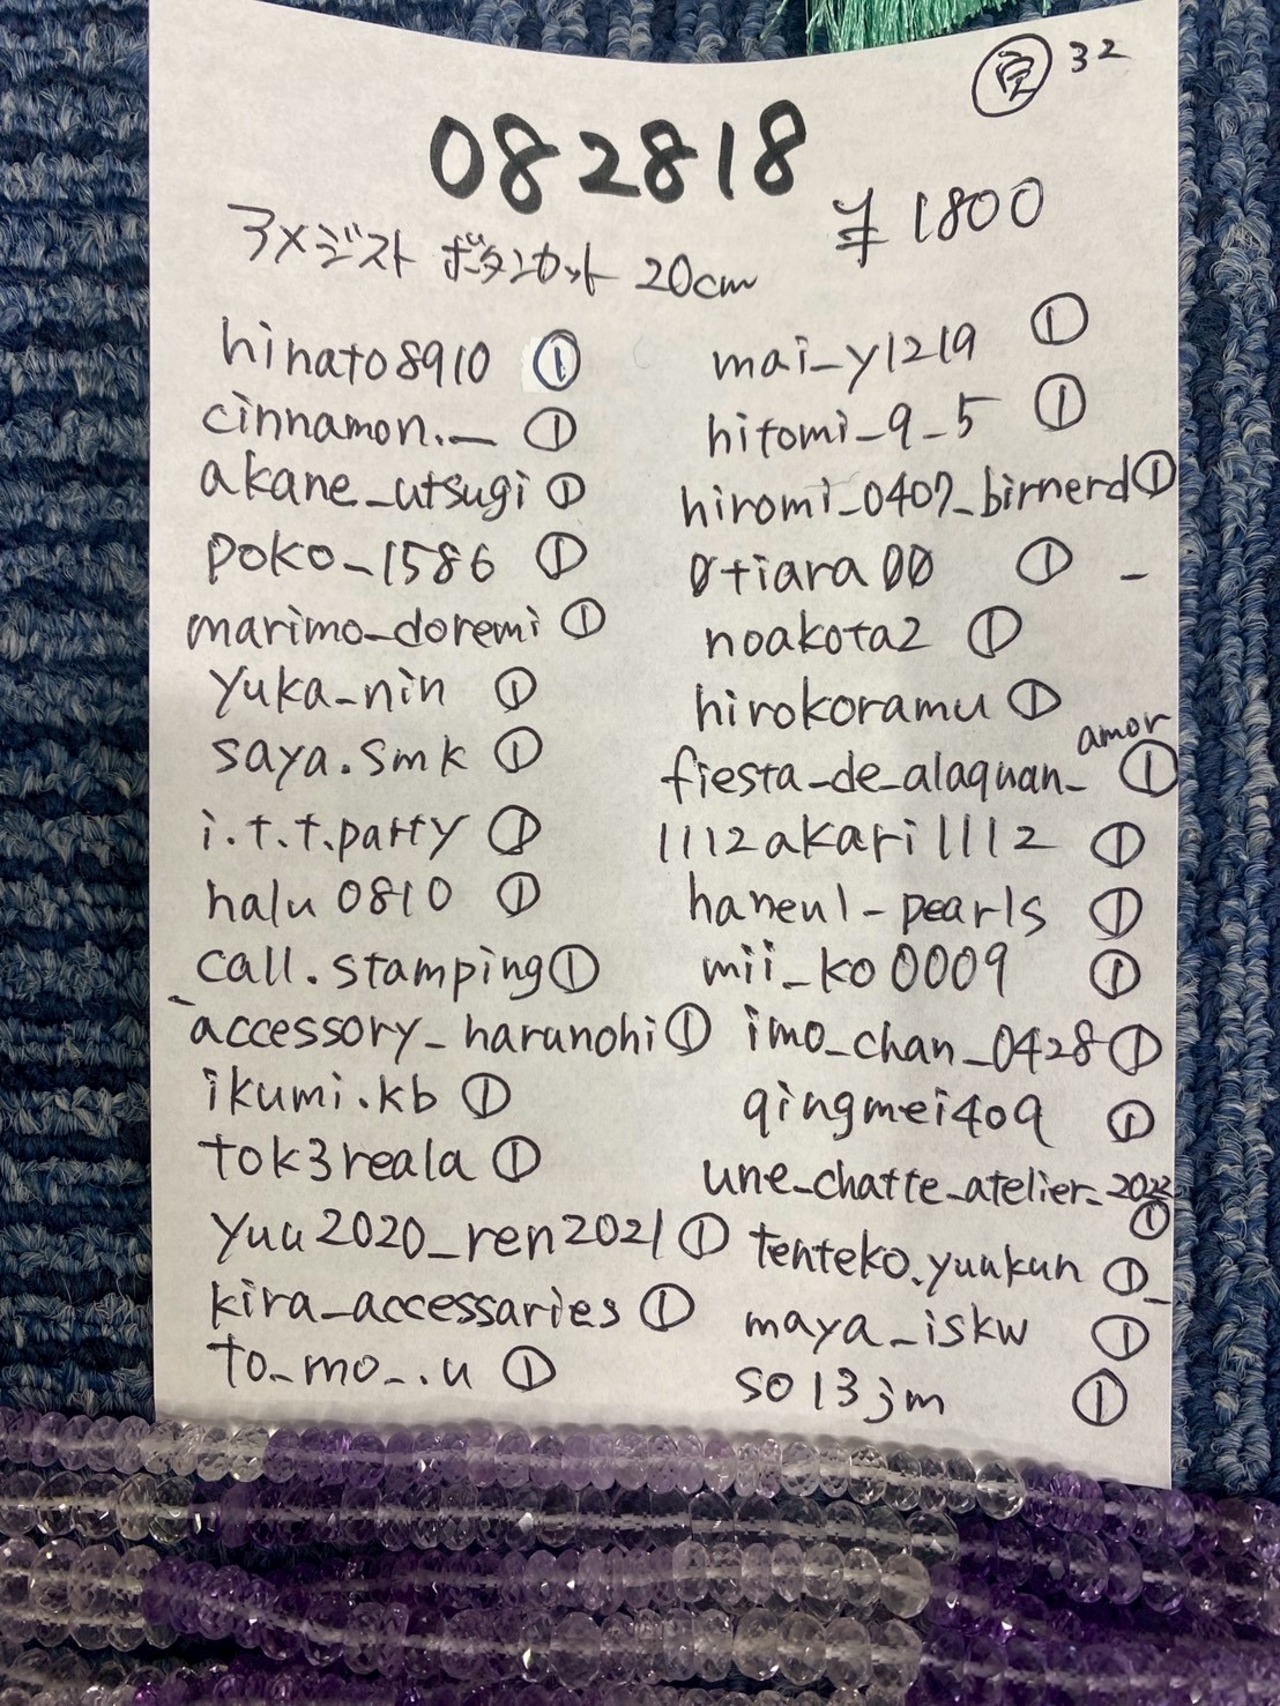 完 32
082818
¥1800
アメジスト ボタンカット 20cm
hinato8910 ①
cinnamon._ ①
akane_utsugi ①
poko_1586 ①
marimo_doremi ①
yuka_nin ①
saya.smk ①
i.t.t.party ①
halu0810 ①
call.stamping ①
accessory_harunohi ①
ikumi.kb ①
tok3reala ①
yuu2020_ren2021 ①
kira_accessaries ①
to_mo_.u ①
mai_y1219 ①
hitomi_9_5 ①
hiromi_0407_birnerd ①
0tiara00 ① -
noakota2 ①
hirokoramu ①
fiesta_de_alaquan_amor ①
1112akari1112 ①
haneul-pearls ①
mii_ko0009 ①
imo_chan_0428 ①
qingmei409 ①
une_chatte_atelier_2022 ①
tenteko.yuukun ①_
maya_iskw ①
so13jm ①